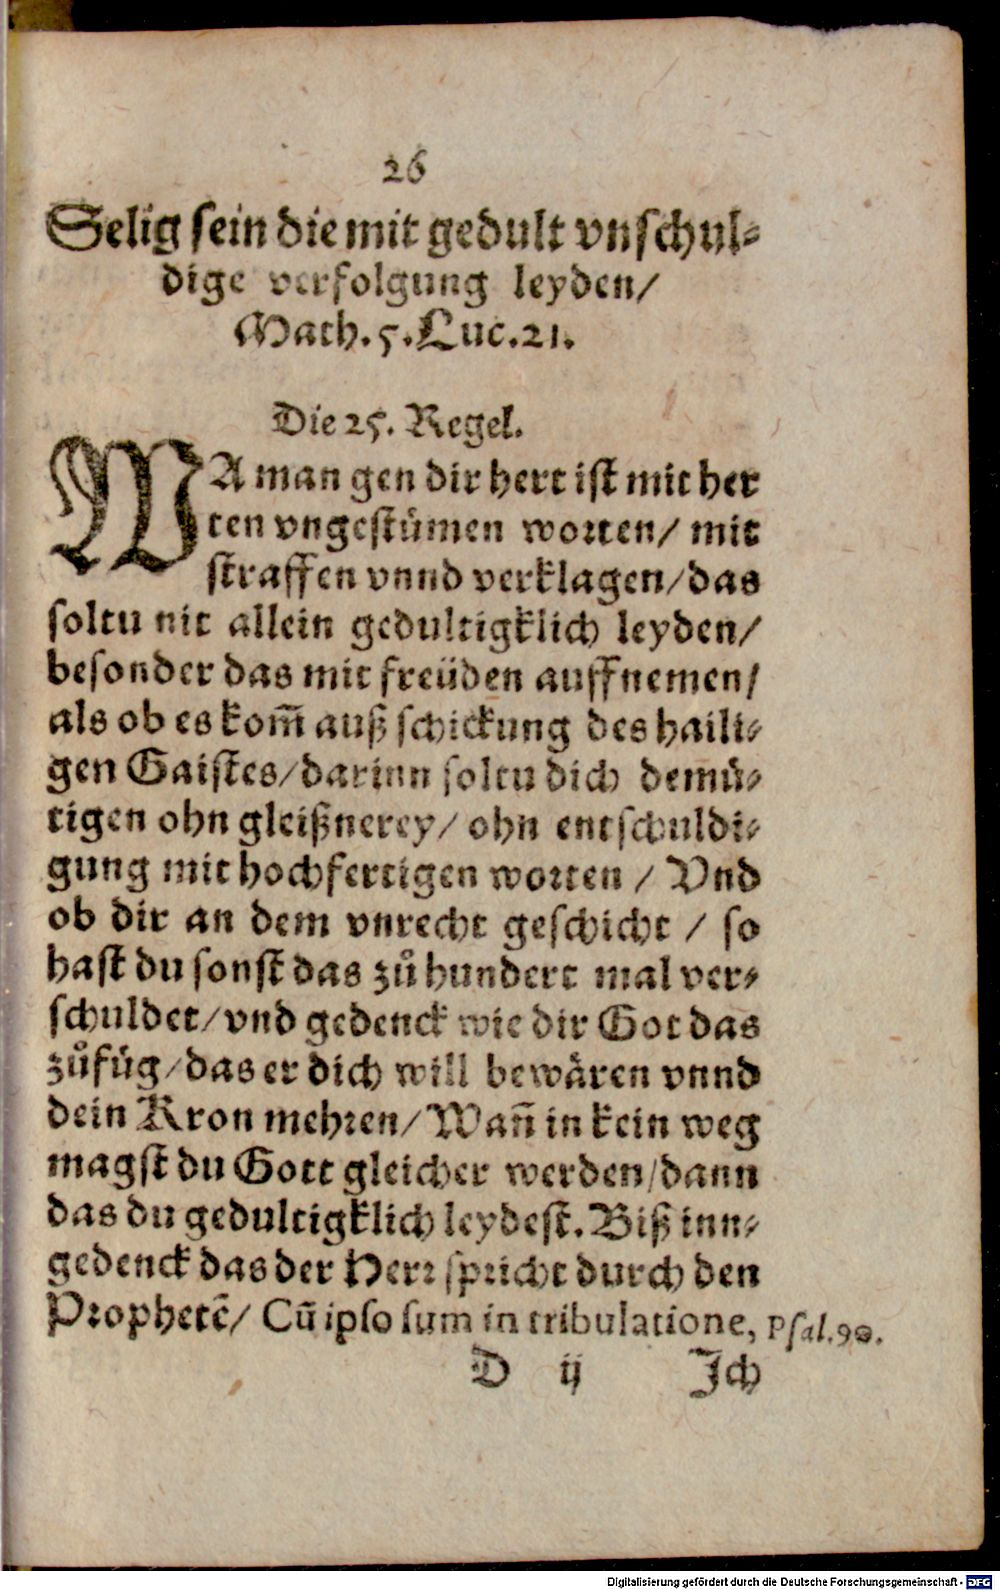 26
Selig sein die mit gedult vnschul⸗
dige verfolgung leyden/
Math. 5. Luc. 21.
Die 25. Regel.
WA man gen dir hert ist mit her
ten vngestümen worten/ mit
straffen vnnd verklagen/ das
soltu nit allein gedultigklich leyden/
besonder das mit freüden auffnemen/
als ob es kom̃ auß schickung des haili⸗
gen Gaistes/ darinn soltu dich demü⸗
tigen ohn gleißnerey/ ohn entschuldi⸗
gung mit hochfertigen worten / Vnd
ob dir an dem vnrecht geschicht / so
hast du sonst das zů hundert mal ver⸗
schuldet/ vnd gedenck wie dir Got das
zůfüg/ das er dich will bewären vnnd
dein Kron mehren/ Wañ in kein weg
magst du Gott gleicher werden/ dann
das du gedultigklich leydest. Biß inn⸗
gedenck das der Herr spricht durch den
Prophetẽ/ Cũ ipso sum in tribulatione, Psal. 90.
D ij Ich
Digitalisierung gefördert durch die Deutsche Forschungsgemeinschaft - DFG